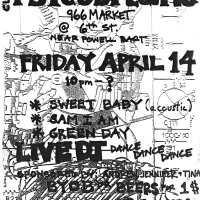 966 MARKET
@ 6th ST.
NEAR POWELL BART
FRIDAY APRIL 14
10pm - ?
* SWEET BABY (acoustic)
* SAM I AM
* GREEN DAY
LIVE DJ DANCE DANCE DANCE
SPONSORED BY: ANDREW, JENNIFER + TINA
BEERS FOR $1